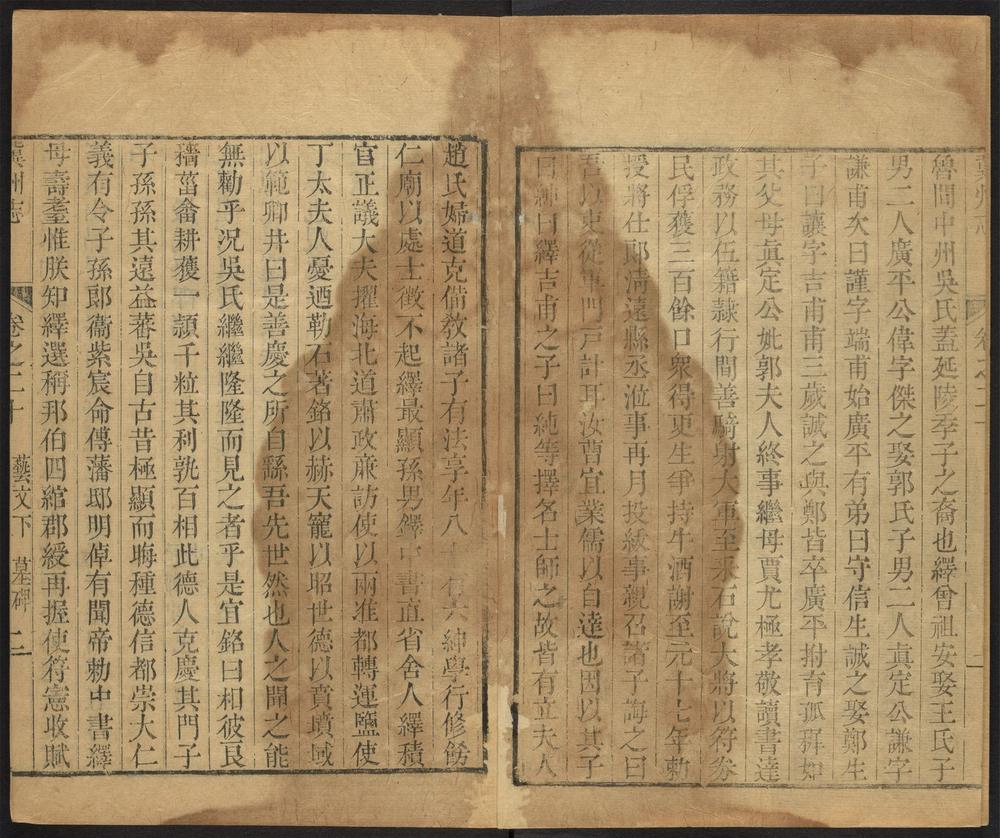 魯間中州吳氏蓋延陵季子之裔也繹曾祖安娶王氏子
男二人廣平公偉字傑之娶郭氏子男二人真定公謙字
謙甫次曰謹字端甫始廣平有弟曰守信生誠之娶鄭生
子曰讓字吉甫甫三歲誠之與鄭皆卒廣平拊育孤穉如
其父母真定公妣郭夫人終事繼母賈尤極孝敬讀書達
政務以伍籍隷行間善騎射大軍至采石說大將以符券
民俘獲三百餘口衆得更生爭持牛酒謝至元十七年勅
授將仕郎清遠縣丞涖事再月投紱事親召諸子誨之曰
吾以吏從軍門戸計耳汝曹宜業儒以自達也因以其子
曰紳曰繹吉甫之子曰純等擇名士師之故皆有立夫人
趙氏婦道克備敎諸子有法享年八 有六紳學行修飭
仁廟以處士徵不起繹最顯孫男鐸中書直省舍人繹積
官正議大夫擢海北道肅政亷訪使以兩淮都轉運鹽使
丁太夫人憂迺勒石著銘以赫天寵以昭世德以賁墳域
以範卿井曰是善慶之所自繇吾先世然也人之聞之能
無勸乎况吳氏繼繼隆隆而見之者乎是宜銘曰相彼良
穡菑畬耕穫一頴千粒其利孰百相此德人克慶其門子
子孫孫其遠益蕃吳自古昔極顯而晦種德信都崇大仁
義有令子孫郎衞紫宸侖傳藩邸明倬有聞帝勅中書繹
母壽耋惟朕知繹選稱邦伯四綰郡綬再握使符憲收賦
冀州志 卷之二十 藝文下 墓碑 二